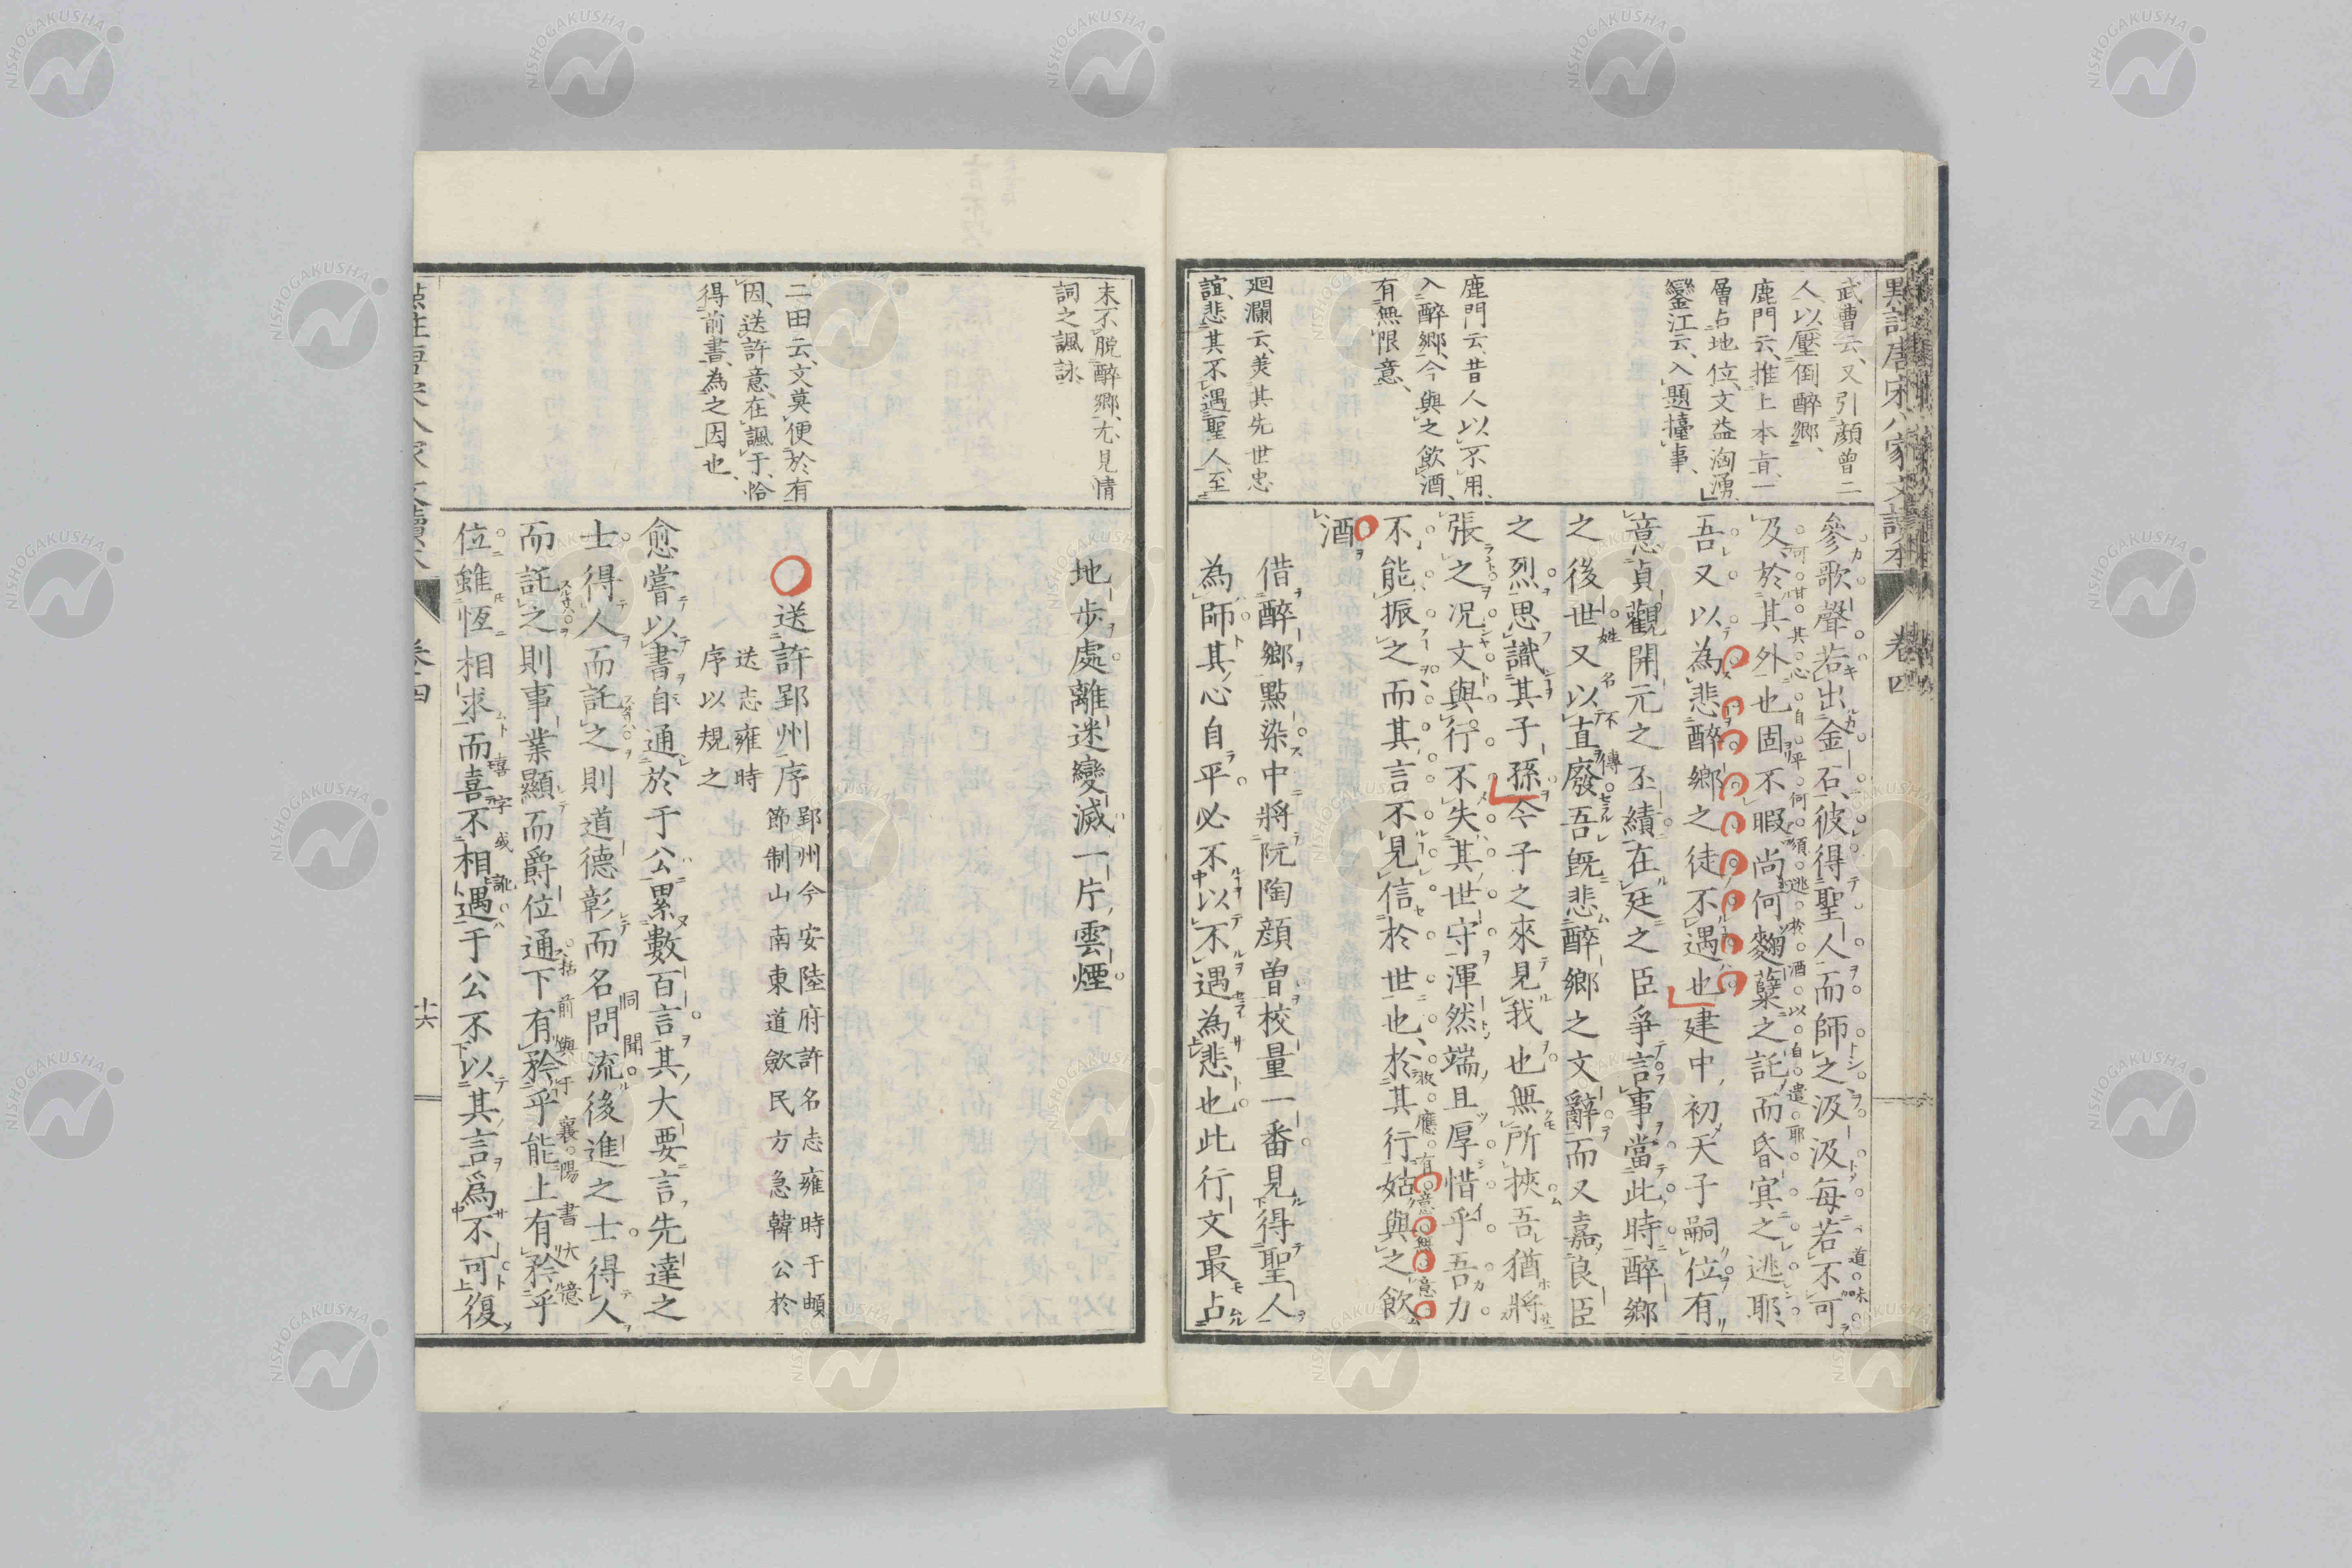 點註唐宋八家文讀本
卷四
武曹云、又引顏曾二
人、以壓倒醉鄉、
鹿門云、推上本旨、一
層占地位、文益洶湧、
鑾江云、入題擡事、
鹿門云、昔人以不用、
入醉鄉、今與之飲酒、
有無限意、
廻瀾云、美其先世忠
誼、悲其不遇聖人、至
參歌聲若出金石、彼得聖人而師之汲汲每若不可
道味
及、於其外也固不暇尚何麴蘖之託、而昏冥之逃耶、
可甘其心自平何須逃於酒以自遣耶
吾又以為悲醉鄉之徒不遇也建中初天子嗣位有
意貞觀開元之丕績在廷之臣爭言事當此時醉鄉
之後世又以直廢吾既悲醉鄉之文辭而又嘉良臣
姓名不傳
之烈思識其子孫今子之來見我也無所挾吾猶將
張之况文與行不失其世守渾然端且厚惜乎吾力
不能振之而其言不見信於世也、於其行姑與之飲
故應有意無意
酒
借醉鄉點染中將阮陶顏曾校量一番見得聖人
為師其心自平必不以不遇為悲也此行文最占
末不脫醉鄉、尤見情
詞之諷詠
二田云、文莫便於有
因、送許意、在諷于、恰
得前書、為之因也、
地步處離迷變滅一片雲煙
送許郢州序
郢州今安陸府許名志雍時于頔
節制山南東道歛民方急韓公於
送志雍時
序以規之
愈嘗以書自通於于公累數百言其大要言先達之
士得人而託之則道德彰而名問流後進之士得人
問聞
而託之則事業顯而爵位通下有矜乎能上有矜乎
括前與于襄陽書大億
位雖恆相求而喜不相遇于公不以其言為不可復
喜字或訛
卷四
十六